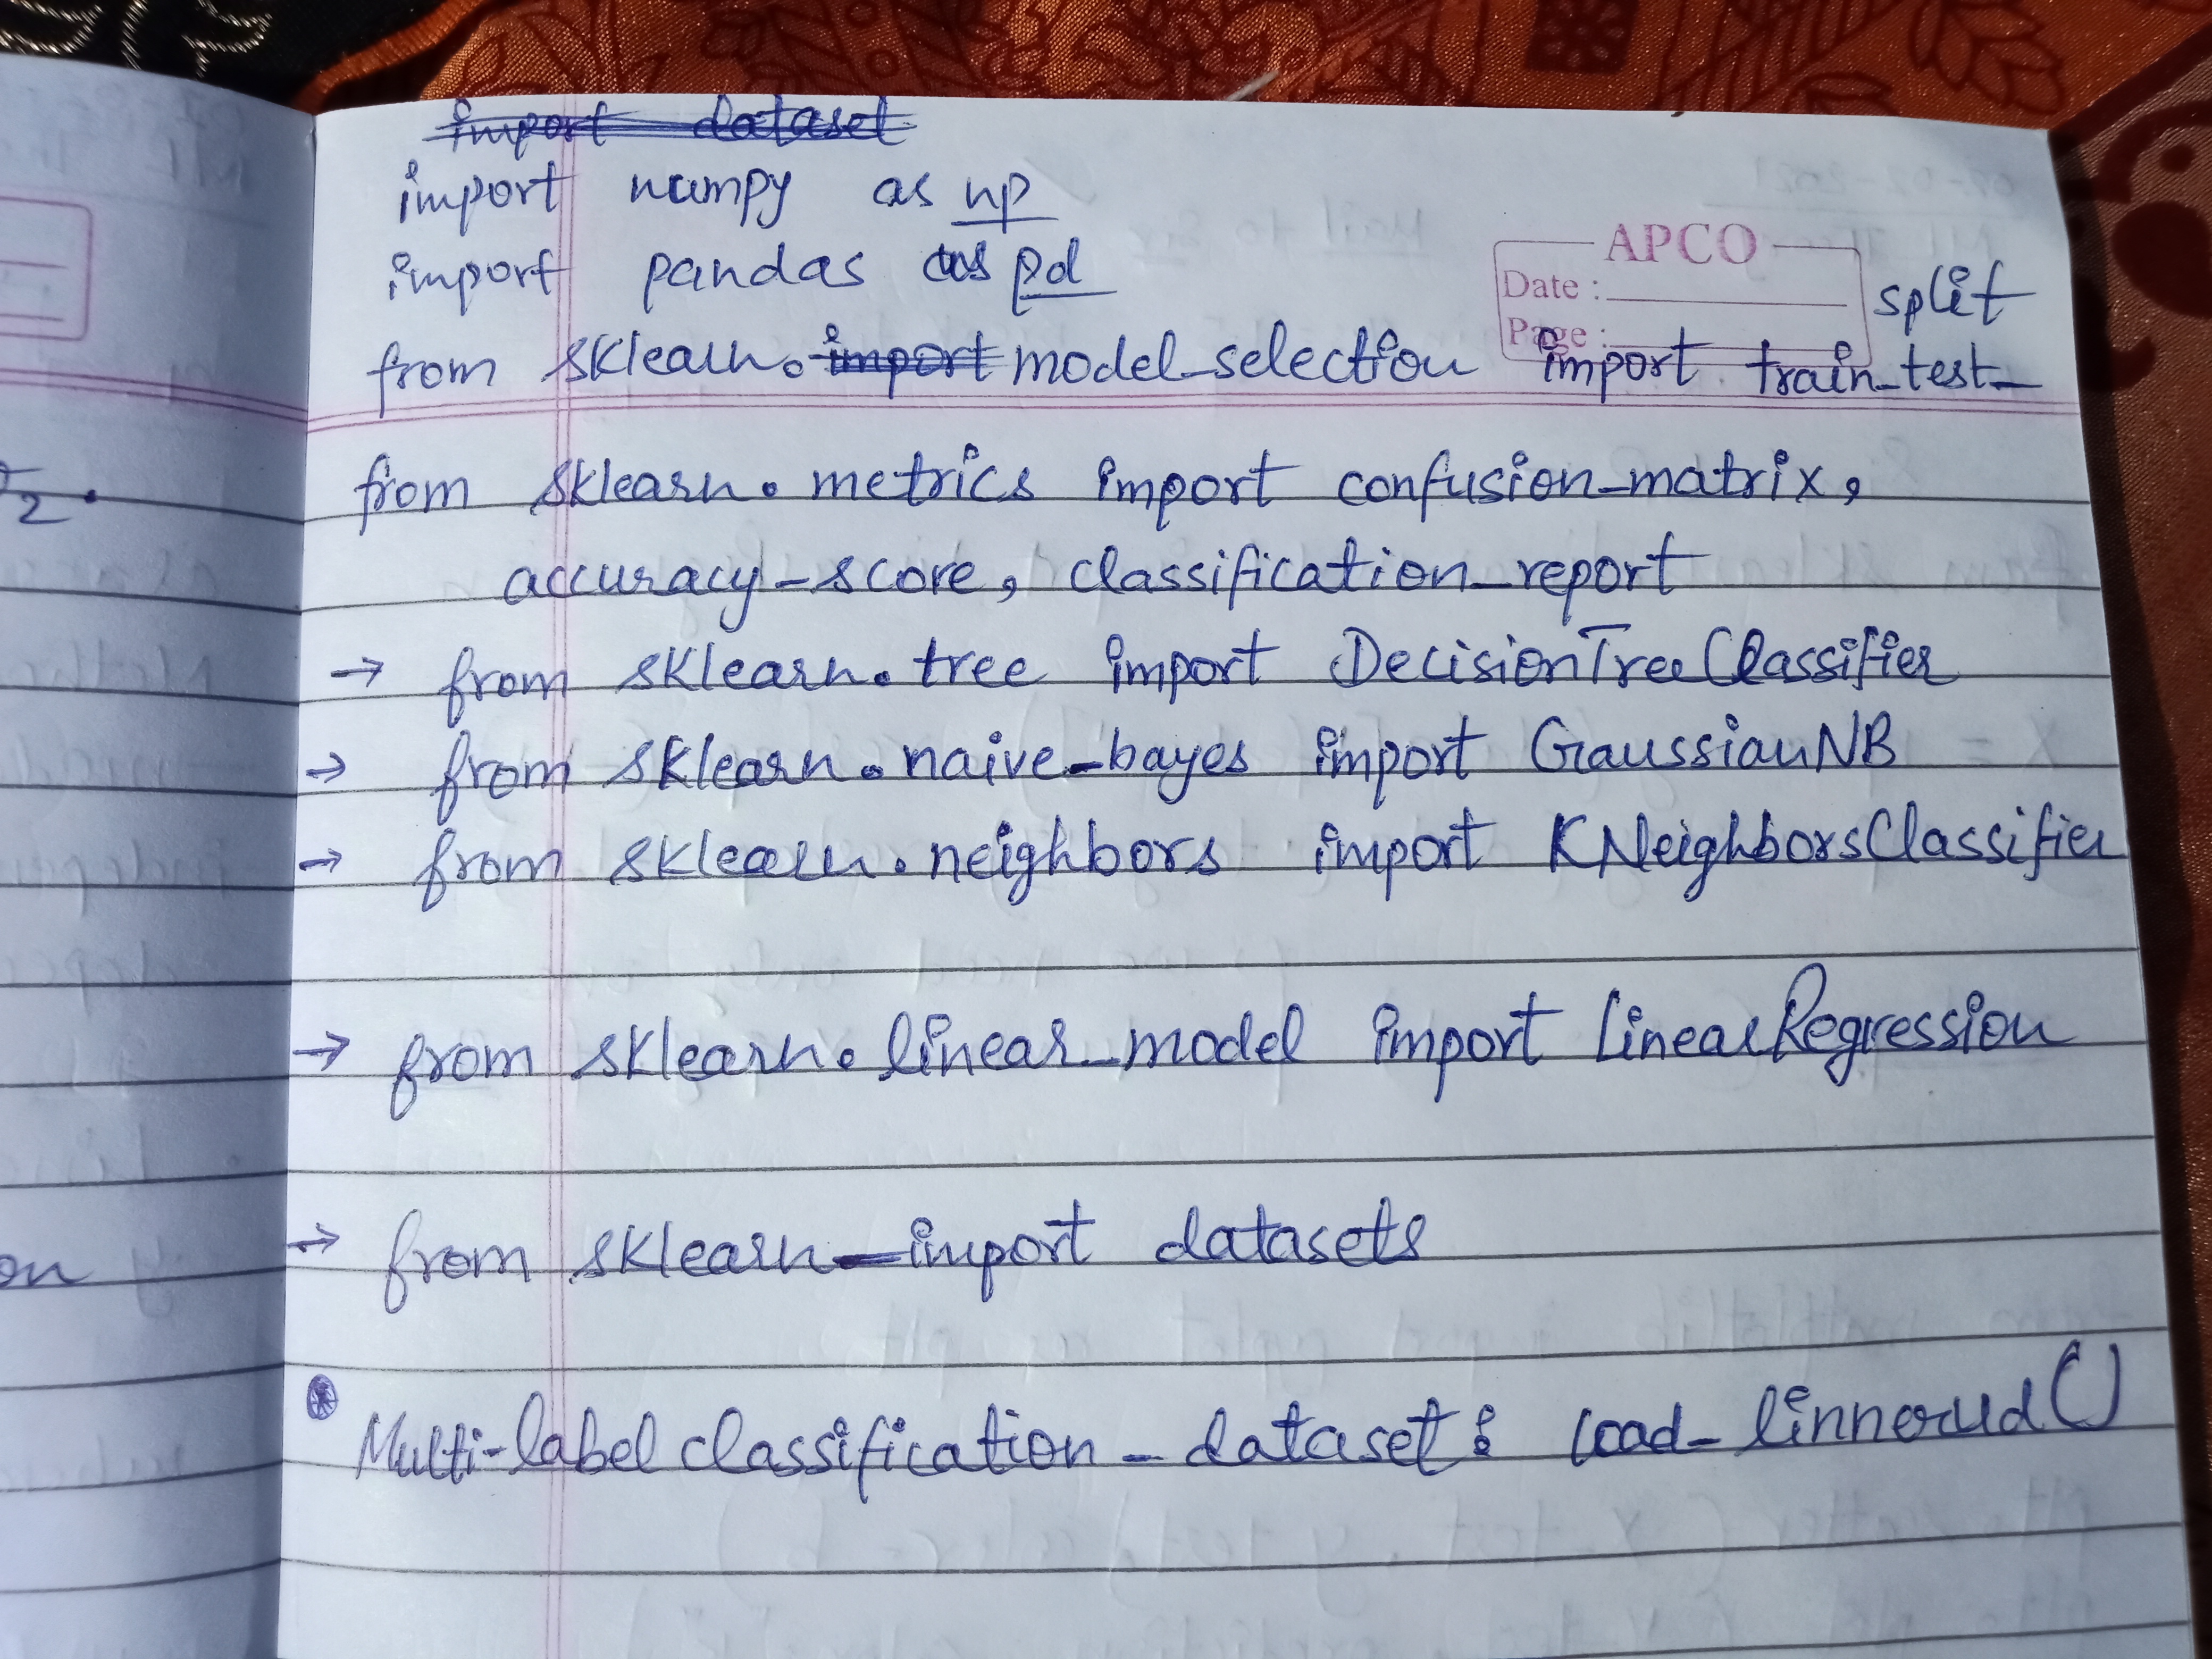 import dataset
import numpy as np
import pandas as pd
APCO
Date :
Page :
split
from sklearn.import model_selection import train_test_
from sklearn.metrics import confusion_matrix,
accuracy_score, classification_report
→ from sklearn.tree import DecisionTreeClassifier
→ from sklearn.naive_bayes import GaussianNB
→ from sklearn.neighbors import KNeighborsClassifier
→ from sklearn.linear_model import LinearRegression
→ from sklearn import datasets
Multi-label classification - dataset : load_linnerud()
2.
on